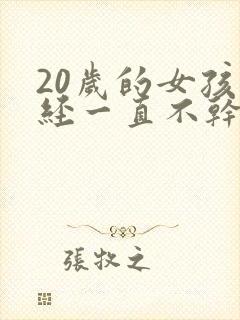 20歲的女孩
經一直不幹
張牧之